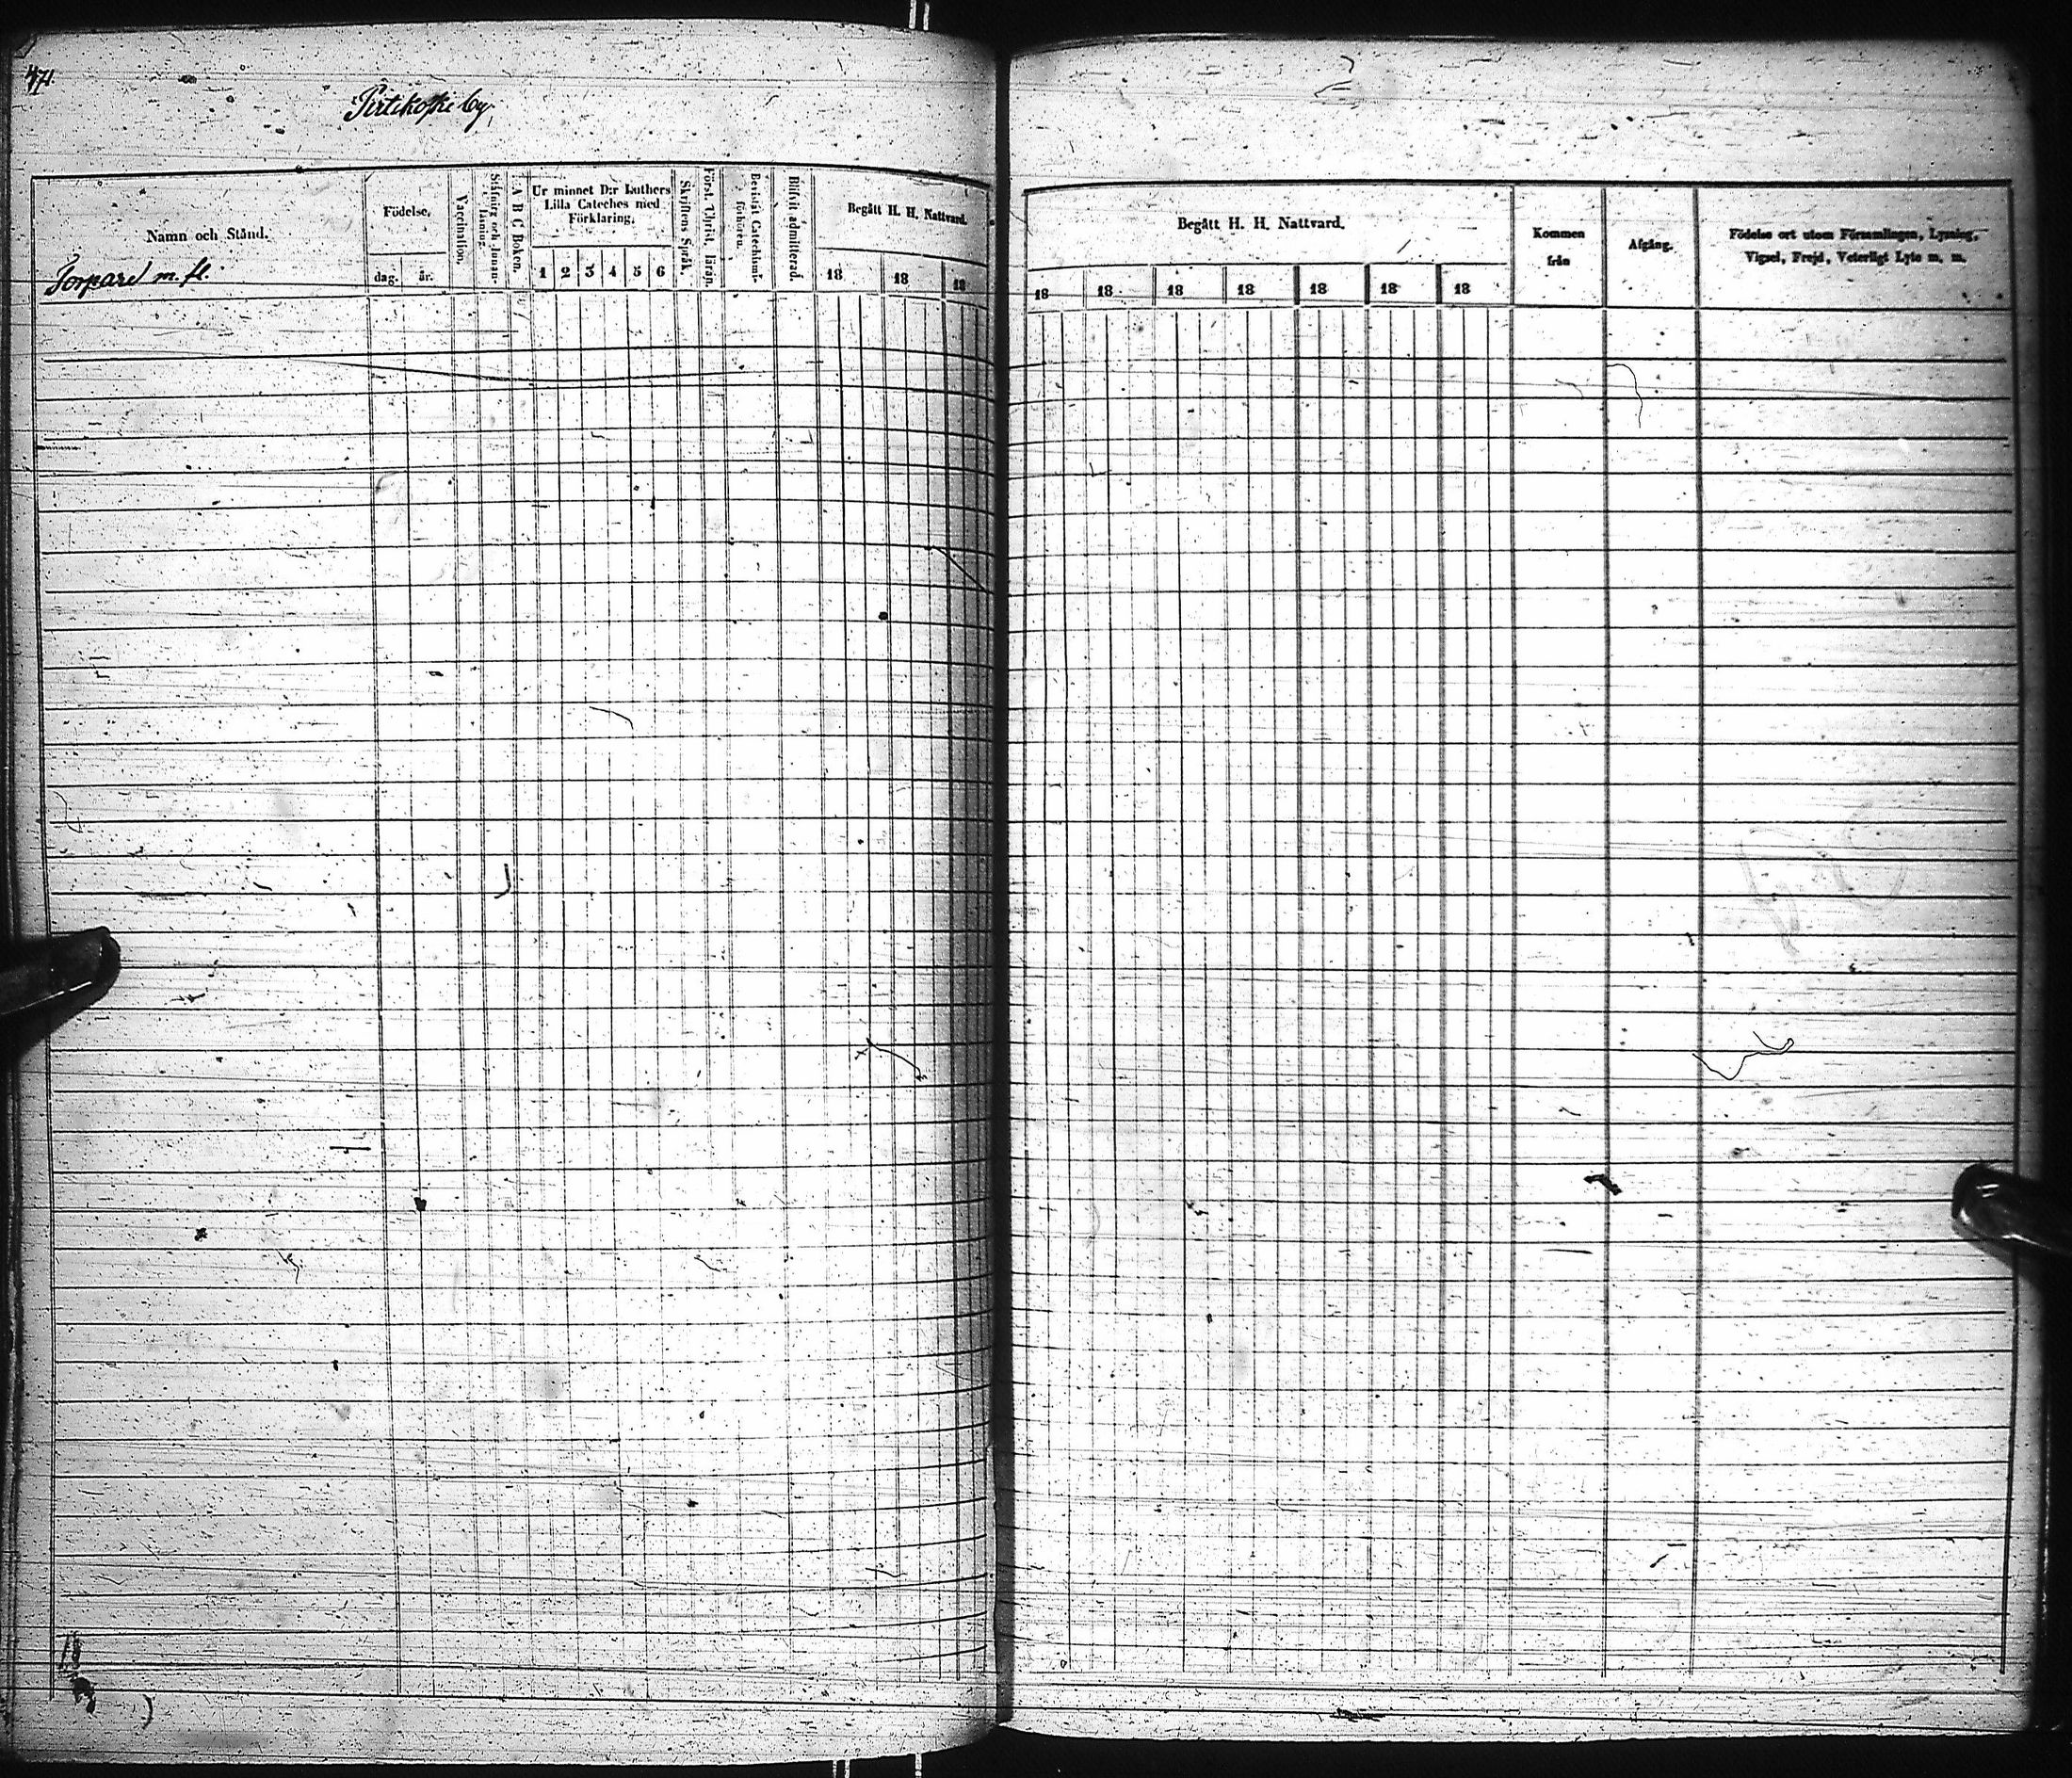 471.
Pirtikoski by
Namn och Stånd.
Torpare m. fl.
Födelse,
dag. år.
Vaccination.
Stafning och Innan-
läsning.
A B C Boken.
Ur minnet D:r Luthers
Lilla Cateches med
Förklaring.
1 2 3 4 5 6
Skriftens Språk.
Först. Christ. läran.
Bevistat Catechismi-
förhören.
Blifvit admitterad.
Begått H. H. Nattvard.
18 18 18
Begått H. H. Nattvard.
18 18 18 18 18 18 18
Kommen
från
Afgång.
Födelse ort utom Församlingen, Lysning,
Vigsel, Frejd, Veterligt Lyte m. m.